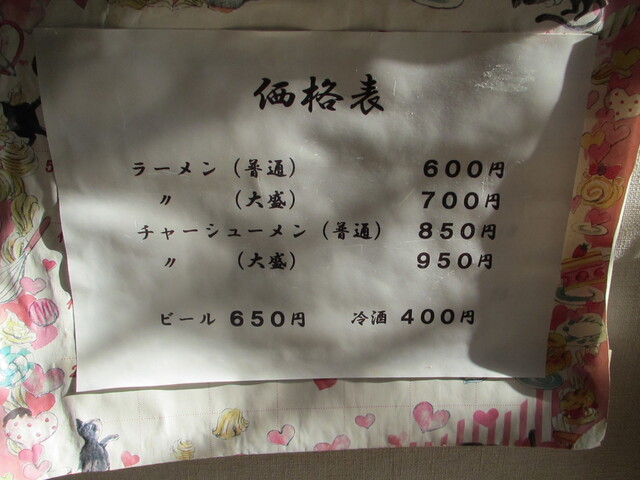 価格表
ラーメン（普通） 600円
〃 （大盛） 700円
チャーシューメン（普通） 850円
〃 （大盛） 950円
ビール 650円 冷酒 400円